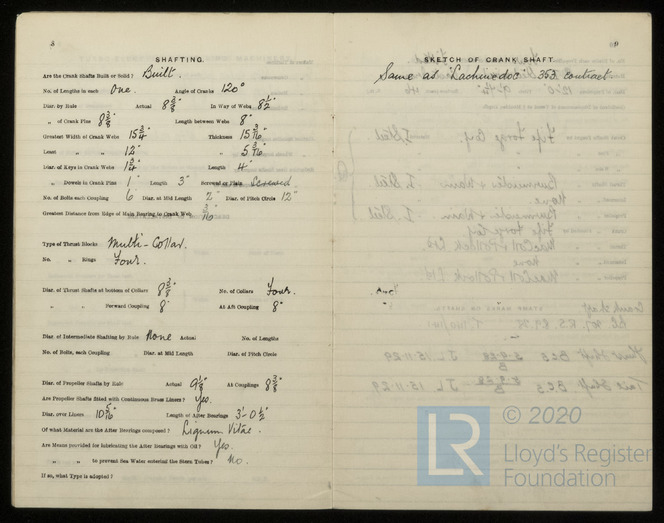 8
SHAFTING.
Are the Crank Shafts Built or Solid? Built.
No. of Lengths in each One. Angle of Cranks 120°
Diar. by Rule Actual 8 3/8" In Way of Webs 8 1/2"
" of Crank Pins 8 3/8" Length between Webs 8"
Greatest Width of Crank Webs 15 3/4" Thickness
Least " " 12" " 5 3/16"
Diar. of Keys in Crank Webs 1 3/4" Length 4"
" Dowels in Crank Pins 1" Length 3" Screwed or Plain Screwed
No. of Bolts each Coupling 6 Diar. at Mid Length 2" Diar. of Pitch Circle 12"
Greatest Distance from Edge of Main Bearing to Crank Web 3/16"
Type of Thrust Blocks Multi-Collar.
No. " Rings Four.
Diar. of Thrust Shafts at bottom of Collars 8 3/8" No. of Collars Four.
" " Forward Coupling 8" At Aft Coupling 8"
Diar. of Intermediate Shafting by Rule None Actual No. of Lengths
No. of Bolts, each Coupling Diar. at Mid Length Diar. of Pitch Circle
Diar. of Propeller Shafts by Rule Actual 9 1/8" At Couplings 8 3/8"
Are Propeller Shafts fitted with Continuous Brass Liners? Yes.
Diar. over Liners 10 5/16" Length of After Bearings 3'-0 1/2"
Of what Material are the After Bearings composed? Lignum Vitae.
Are Means provided for lubricating the After Bearings with Oil? Yes.
" " to prevent Sea Water entering the Stern Tubes? No.
If so, what Type is adopted?
9
SKETCH OF CRANK SHAFT.
Same as "Lachinedoc" 353 contract.
© 2020
LR
Lloyd's Register
Foundation